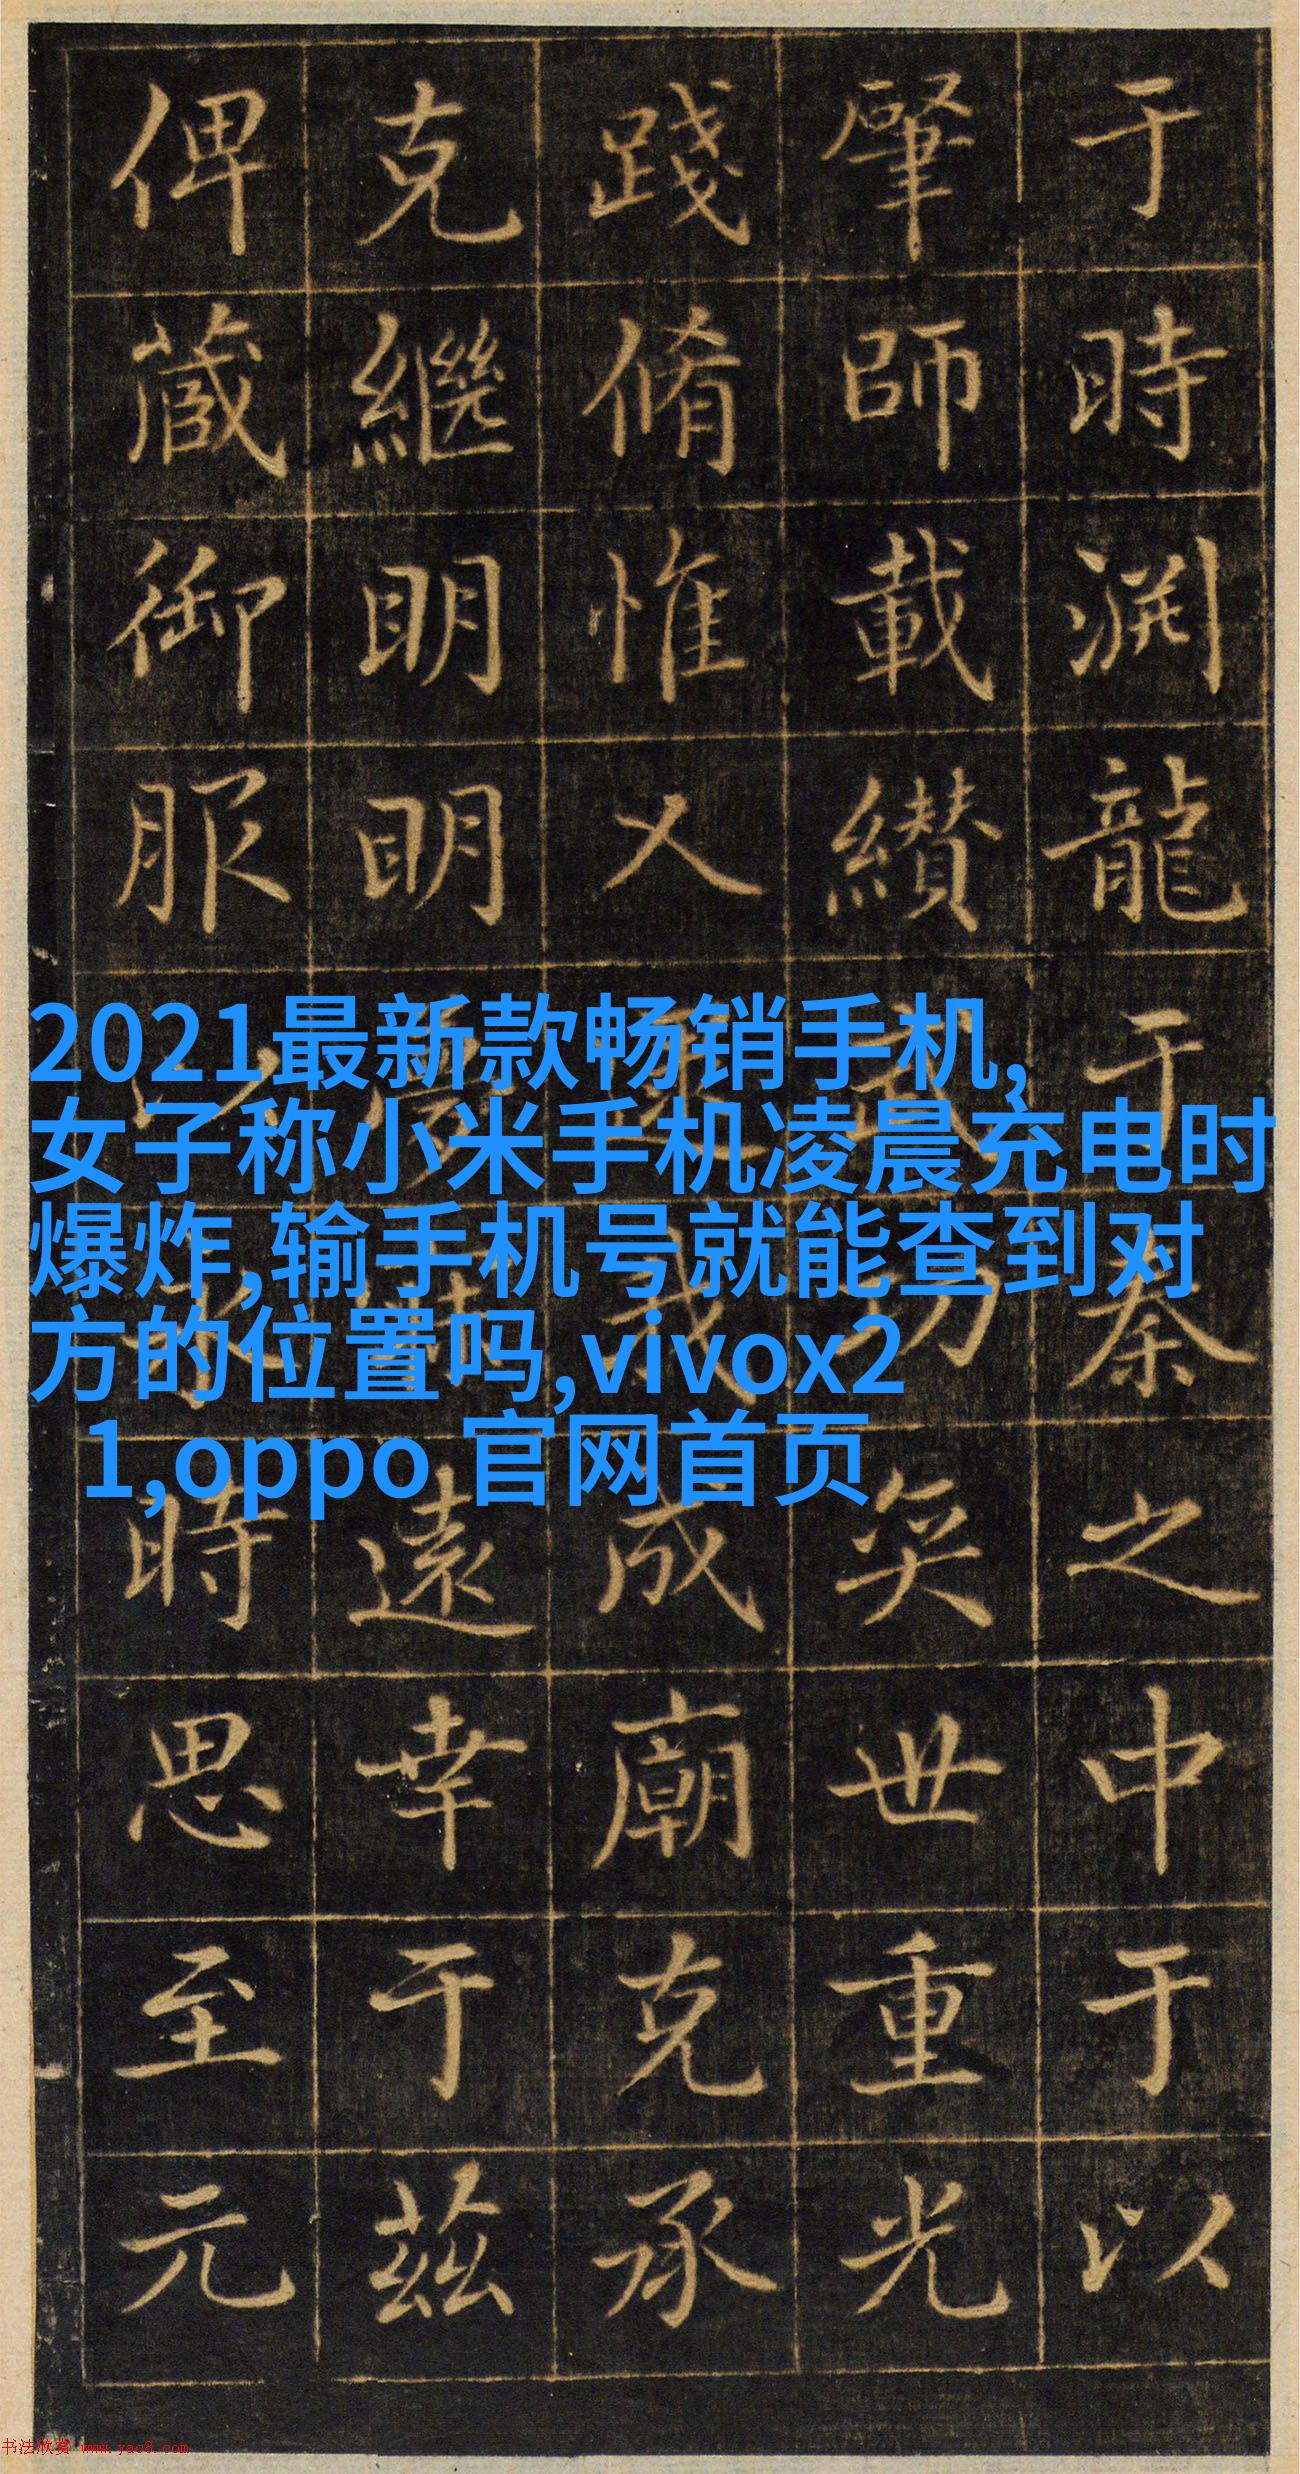 于時渊龍于秦之中于以
肇師載纘武功奕世重光
踐脩惟乂我成廟克承
克繼明明遠幸于茲
俾蕆御服以時思至元
2021最新款畅销手机,
女子称小米手机凌晨充电时
爆炸,输手机号就能查到对
方的位置吗,vivox2
1,oppo 官网首页
书法欣赏 www.yac8.com